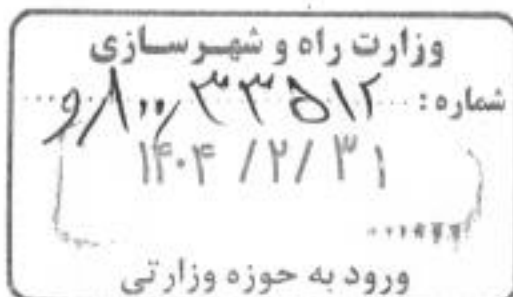 وزارت راه و شهرسازی
شماره: ۳۳۵۱۲
۱۴۰۴ /۲/ ۳۱
ورود به حوزه وزارتی